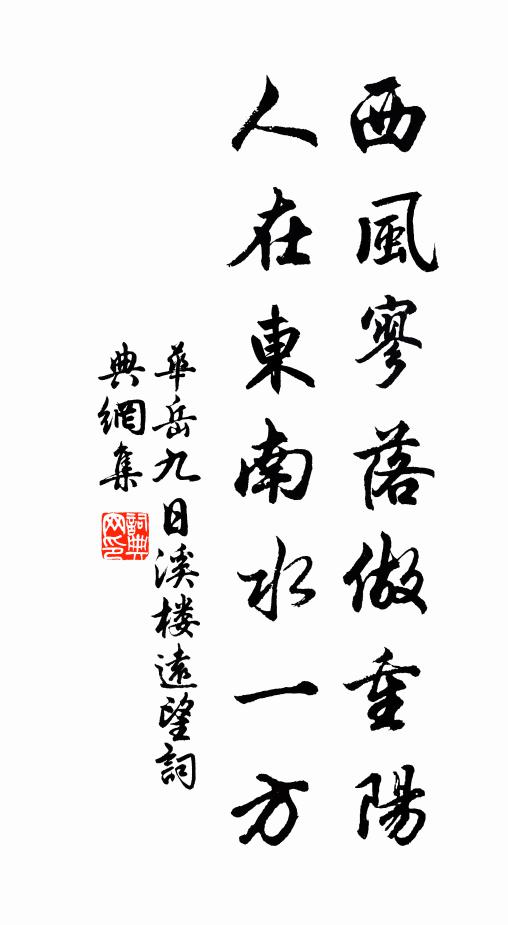 西風寥落做重陽
人在東南水一方
華岳九日溪楼遠望詞
典網集
詞典
网印